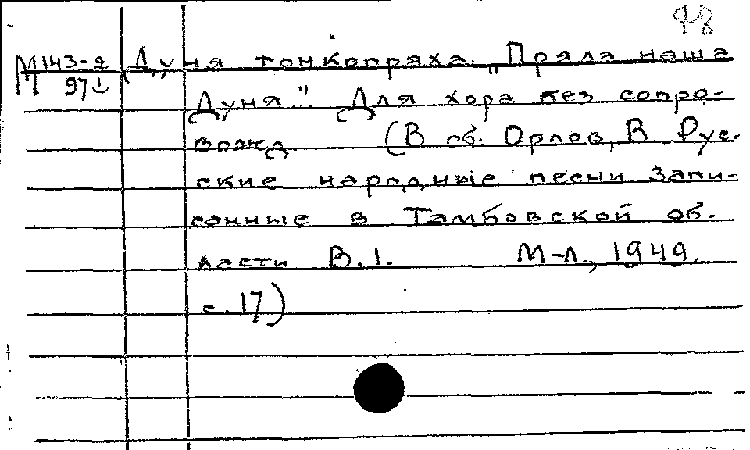 98
М143-2 Дуня тонкопряха „Пряла наша
97↓ Дуня". Для хора без сопро-
вожд. (В сб. Орлов, В. Рус-
ские народные песни запи-
санные в Тамбовской об-
ласти В.1. М-Л., 1949.
с.17)